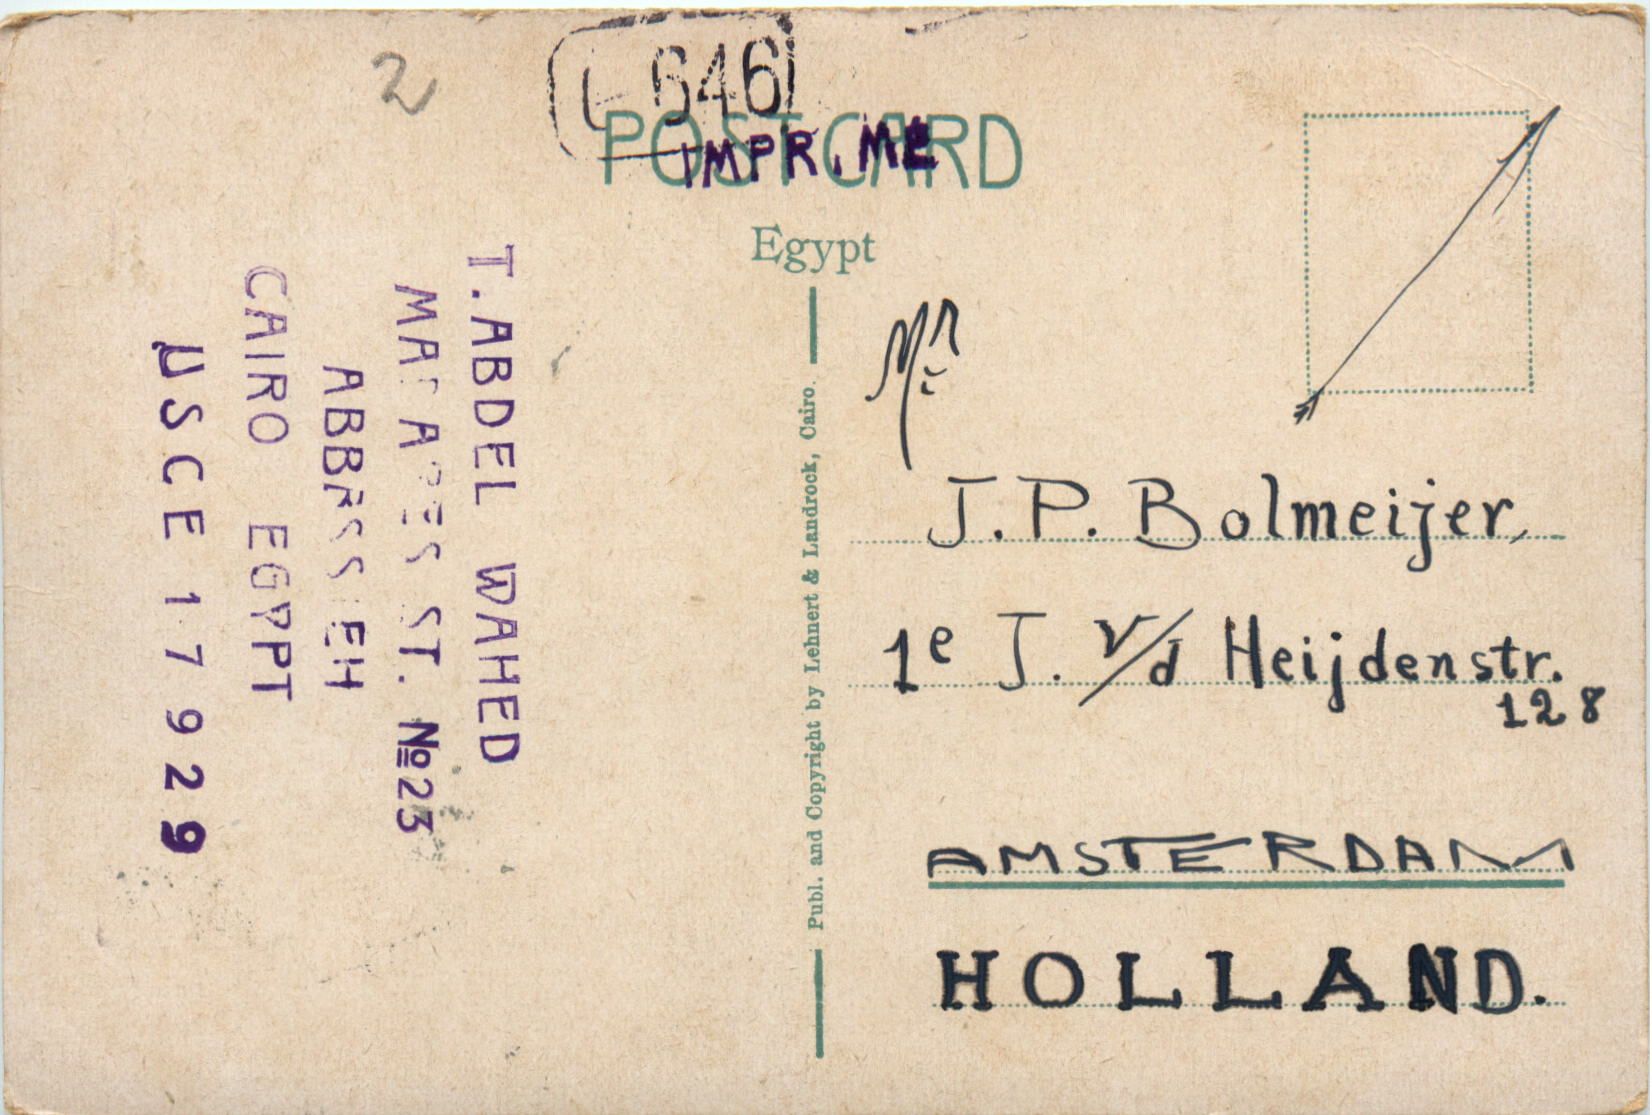 2
L 646
POSTCARD
IMPRIME
Egypt
T. ABDEL WAHED
ST. №23
ABBASSIEH
CAIRO EGYPT
USCE 17929
Publ. and Copyright by Lehnert & Landrock, Cairo.
Mr
J. P. Bolmeijer,
1e J. v/d Heijdenstr.
128
AMSTERDAM
HOLLAND.